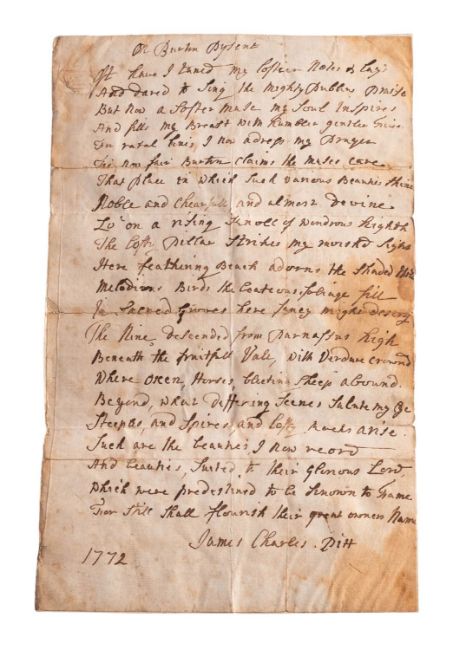 On Burton Pynsent
Oft have I tuned my loftier Notes & Lays
And dared to Sing the mighty Bubbs Praise
But Now a Softer muse my Soul Inspires
And fills my Breast with humbler gentler
In rural lines I now adress my Prayer
For now fair Burton claims the muses care
That Place in which Such various Beauties Shine
Noble and Chearfull and almost devine
Lo on a rising Knoll of Wondrous heighth
The lofty Pillar Strikes my Sight
Here feathering Beach adorns the Shaded
Melodious Birds the foliage fill
In Sacred Groves here fancy might descry
The Nine descended from Parnassus high
Beneath the fruitfull Vale, with Verdure Crownd
Where Oxen Horses, bleeting Sheep abound
Beyond, what differing Scenes Salute my Eye
Steeples and Spires, and lofty arise
Such are the beauties I now record
And beauties, Suited to their Glorious Lord
Which were predestined to be known to Fame
For Still Shall flourish their great owners Name
James Charles Pitt
1772